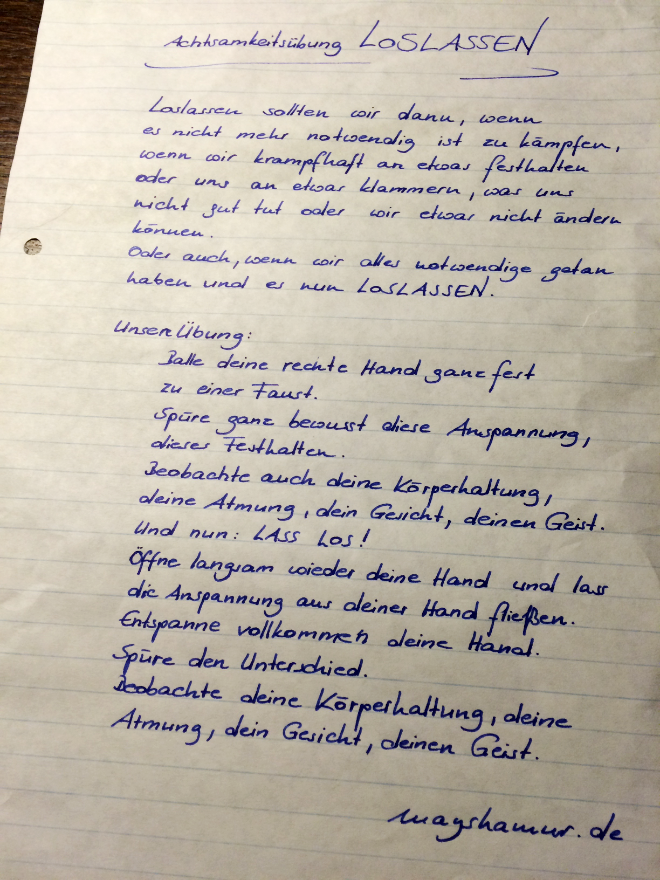 Achtsamkeitsübung LOSLASSEN
Loslassen sollten wir dann, wenn
es nicht mehr notwendig ist zu kämpfen,
wenn wir krampfhaft an etwas festhalten
oder uns an etwas klammern, was uns
nicht gut tut oder wir etwas nicht ändern
können.
Oder auch, wenn wir alles notwendige getan
haben und es nun LOSLASSEN.
Unsere Übung:
Balle deine rechte Hand ganz fest
zu einer Faust.
Spüre ganz bewusst diese Anspannung,
dieses Festhalten.
Beobachte auch deine Körperhaltung,
deine Atmung, dein Gesicht, deinen Geist.
Und nun: LASS LOS!
Öffne langsam wieder deine Hand und lass
die Anspannung aus deiner Hand fließen.
Entspanne vollkommen deine Hand.
Spüre den Unterschied.
Beobachte deine Körperhaltung, deine
Atmung, dein Gesicht, deinen Geist.
mayshamur.de